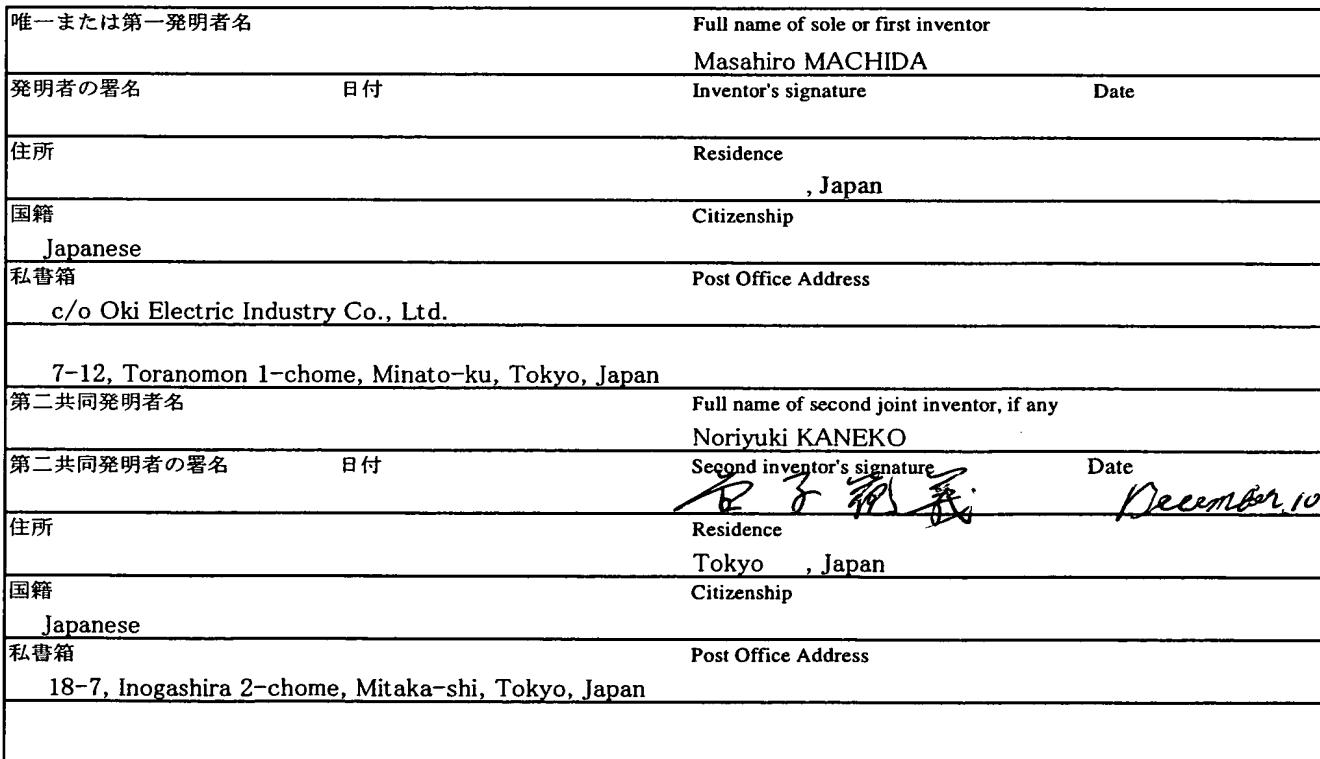 唯一または第一発明者名 Full name of sole or first inventor
Masahiro MACHIDA
発明者の署名 日付 Inventor's signature Date
住所 Residence
, Japan
国籍 Citizenship
Japanese
私書箱 Post Office Address
c/o Oki Electric Industry Co., Ltd.
7-12, Toranomon 1-chome, Minato-ku, Tokyo, Japan
第二共同発明者名 Full name of second joint inventor, if any
Noriyuki KANEKO
第二共同発明者の署名 日付 Second inventor's signature Date
December, 10
住所 Residence
Tokyo , Japan
国籍 Citizenship
Japanese
私書箱 Post Office Address
18-7, Inogashira 2-chome, Mitaka-shi, Tokyo, Japan